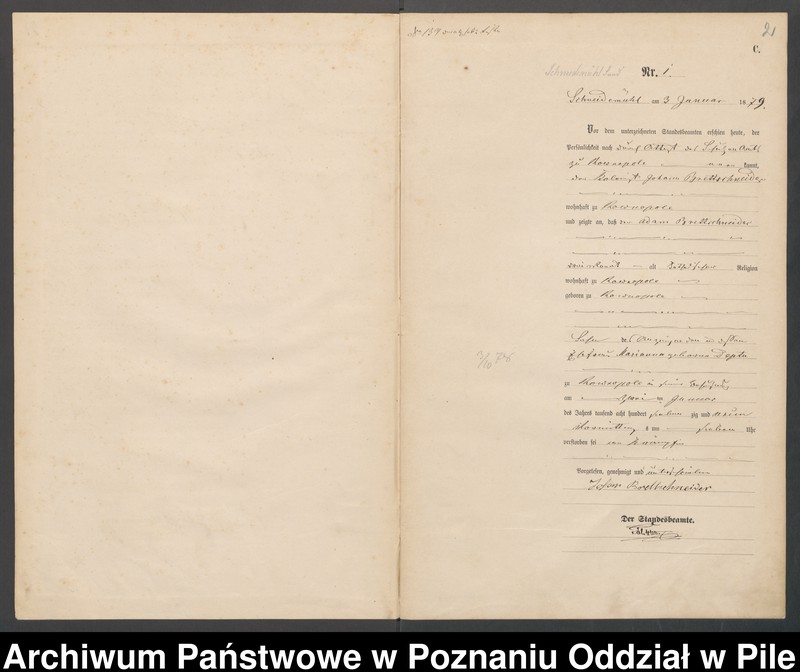 21
C.
Nr. 1.
Schneidemühl am 3 Januar 1879.
Vor dem unterzeichneten Standesbeamten erschien heute, der
Persönlichkeit nach durch Attest des Schulzen Amts
zu Kownopole kannt,
der Johann Brettschneider
wohnhaft zu Kownopole
und zeigte an, daß der Adam Brettschneider
alt katholischer Religion
wohnhaft zu Kownopole
geboren zu Kownopole
Sohn des Anzeigenden und dessen
Ehefrau Marianna geborene Depta
zu Kownopole in seiner Behausung
am zwei ten Januar
des Jahres tausend acht hundert sieben zig und neun
Vormittag s um sieben Uhr
verstorben sei an Krämpfen
Vorgelesen, genehmigt und unterschrieben
Johann Brettschneider
Der Standesbeamte.
Archiwum Państwowe w Poznaniu Oddział w Pile